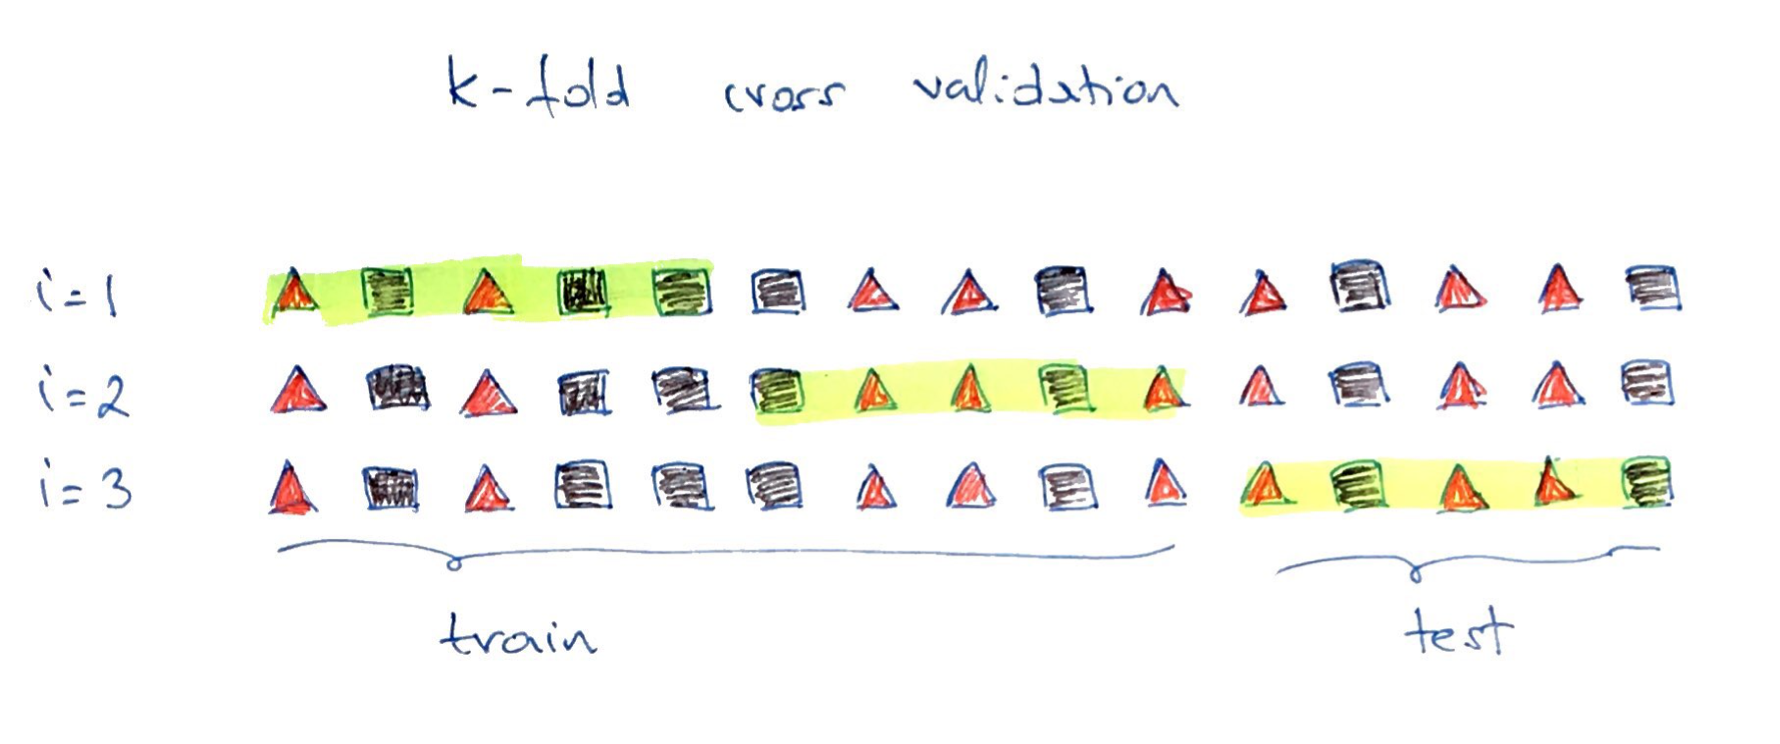 k-fold cross validation
i=1
i=2
i=3
train
test